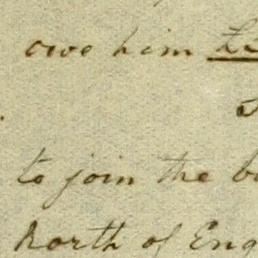 owe him
to join the
North of Eng